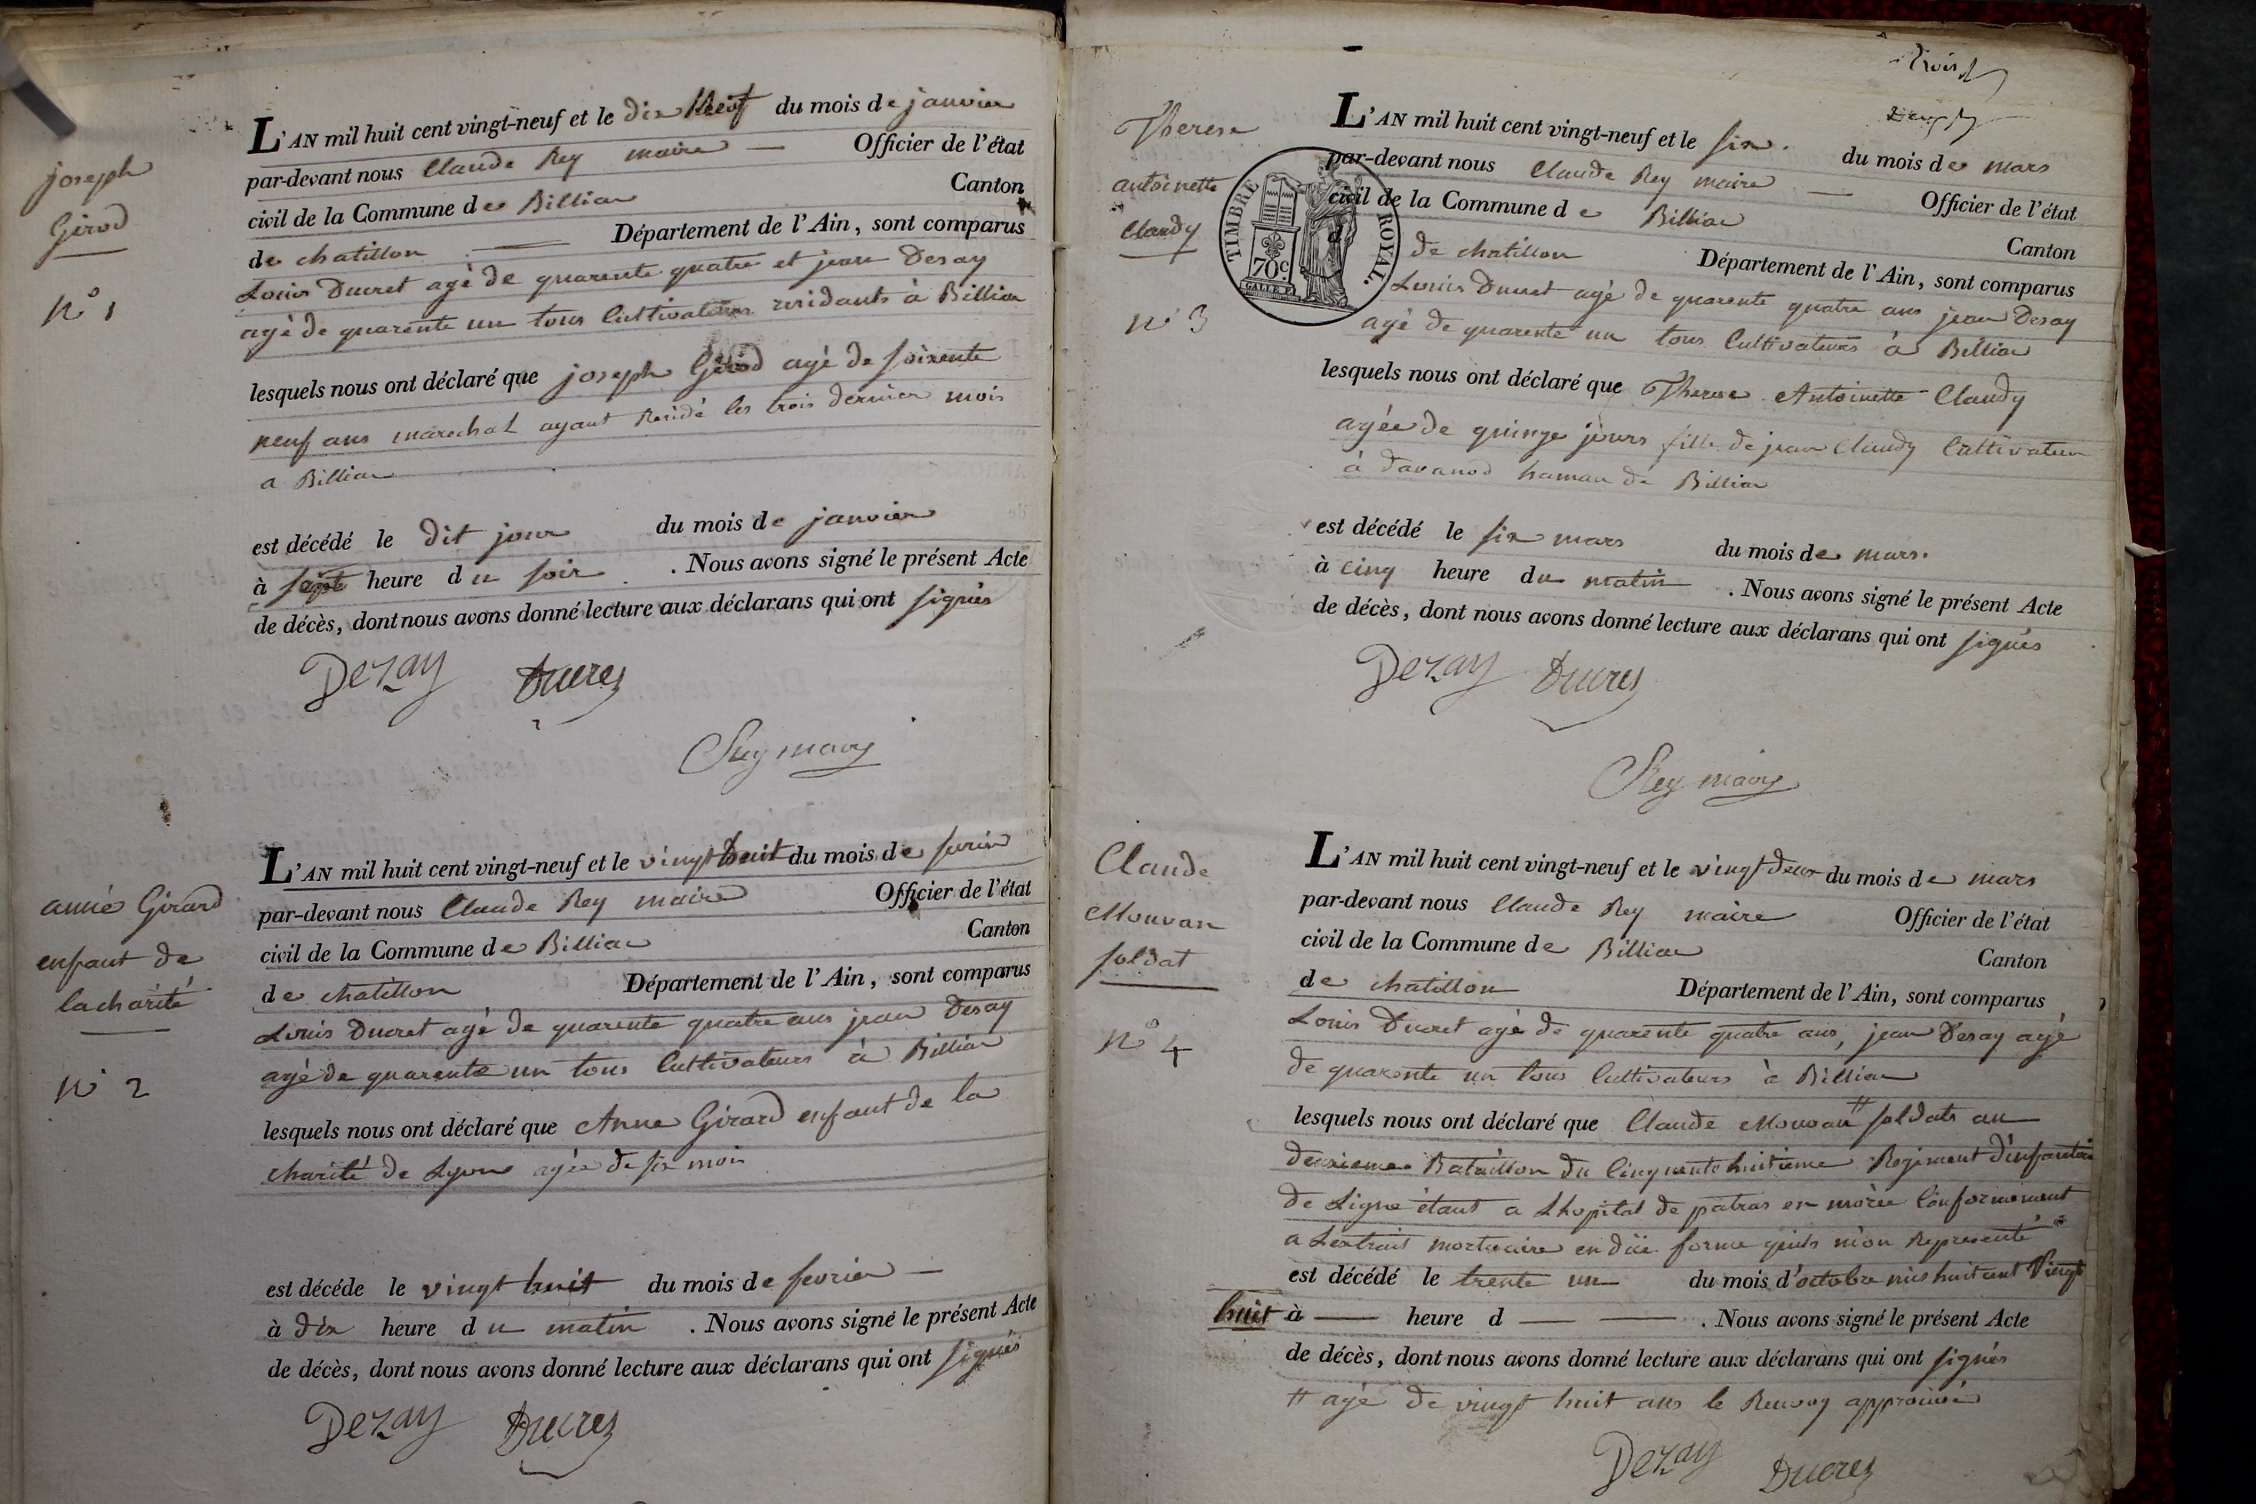 joseph
Girod
N° 1
L'AN mil huit cent vingt-neuf et le dix Neuf du mois de janvier
par-devant nous Claude Rey maire — Officier de l'état
civil de la Commune de Billiac Canton
de chatillon — Département de l'Ain, sont comparus
Louis Ducret agé de quarente quatre et jean Desay
agé de quarente un tous Cultivateurs residants à Billiac
lesquels nous ont déclaré que joseph Girod agé de soixente
neuf ans marechal ayant Residé les trois dernier mois
a Billiac
est décédé le dit jour du mois de janvier
à sept heure du soir . Nous avons signé le présent Acte
de décès, dont nous avons donné lecture aux déclarans qui ont signés
Dezay Ducrey
Rey maire
anné Girard
enfant de
lacharité
N° 2
L'AN mil huit cent vingt-neuf et le vingt huit du mois de
par-devant nous Claude Rey maire Officier de l'état
civil de la Commune de Billiac Canton
de chatillon Département de l'Ain, sont comparus
Louis Ducret agé de quarente quatre ans jean Desay
agé de quarente un tous Cultivateurs à Billiac
lesquels nous ont déclaré que Anne Girard enfant de la
charité de Lyon agée de six mois
est décéde le vingt huit du mois de fevrier —
à dix heure du matin . Nous avons signé le présent Acte
de décès, dont nous avons donné lecture aux déclarans qui ont signés
Dezay Ducrey
trois
Deux
Therese
antoinette
Claudy
N° 3
TIMBRE ROYAL.
70c.
L'AN mil huit cent vingt-neuf et le six . du mois de mars
par-devant nous Claude Rey maire — Officier de l'état
civil de la Commune de Billiac Canton
de chatillon Département de l'Ain, sont comparus
Louis Ducret agé de quarente quatre ans jean Desay
agé de quarente un tous Cultivateurs à Billiac
lesquels nous ont déclaré que Therese Antoinette Claudy
agée de quinze jours fille de jean Claudy Cultivateur
à davanod hamau de Billiac
est décédé le six mars du mois de mars.
à cinq heure du matin . Nous avons signé le présent Acte
de décès, dont nous avons donné lecture aux déclarans qui ont signés
Dezay Ducrey
Rey maire
Claude
Mouvan
soldat
N° 4
L'AN mil huit cent vingt-neuf et le vingt deux du mois de mars
par-devant nous Claude Rey maire Officier de l'état
civil de la Commune de Billiac Canton
de chatillon Département de l'Ain, sont comparus
Louis Ducret agé de quarente quatre ans, jean Desay agé
de quarente un tous Cultivateurs à Billiac
lesquels nous ont déclaré que Claude Mouvan # soldats au
deuxieme Bataillon du Cinquente huitieme Regiment d'infanterie
de Ligne étant a Lhopital de patras en morée Conformement
a Lextrait mortuaire en düe forme quils m'on Representé
est décédé le trente un du mois d'octobre mis huit cent Vingt
huit à — heure d — — . Nous avons signé le présent Acte
de décès, dont nous avons donné lecture aux déclarans qui ont signés
# agé de vingt huit ans le Renvoy approuvé
Dezay Ducrey